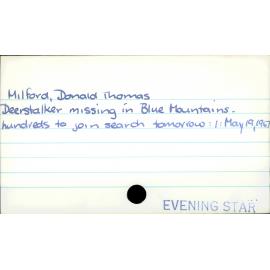 Milford, Donald Thomas
Deerstalker missing in Blue Mountains -
hundreds to join search tomorrow: 1: May 19, 1967
EVENING STAR